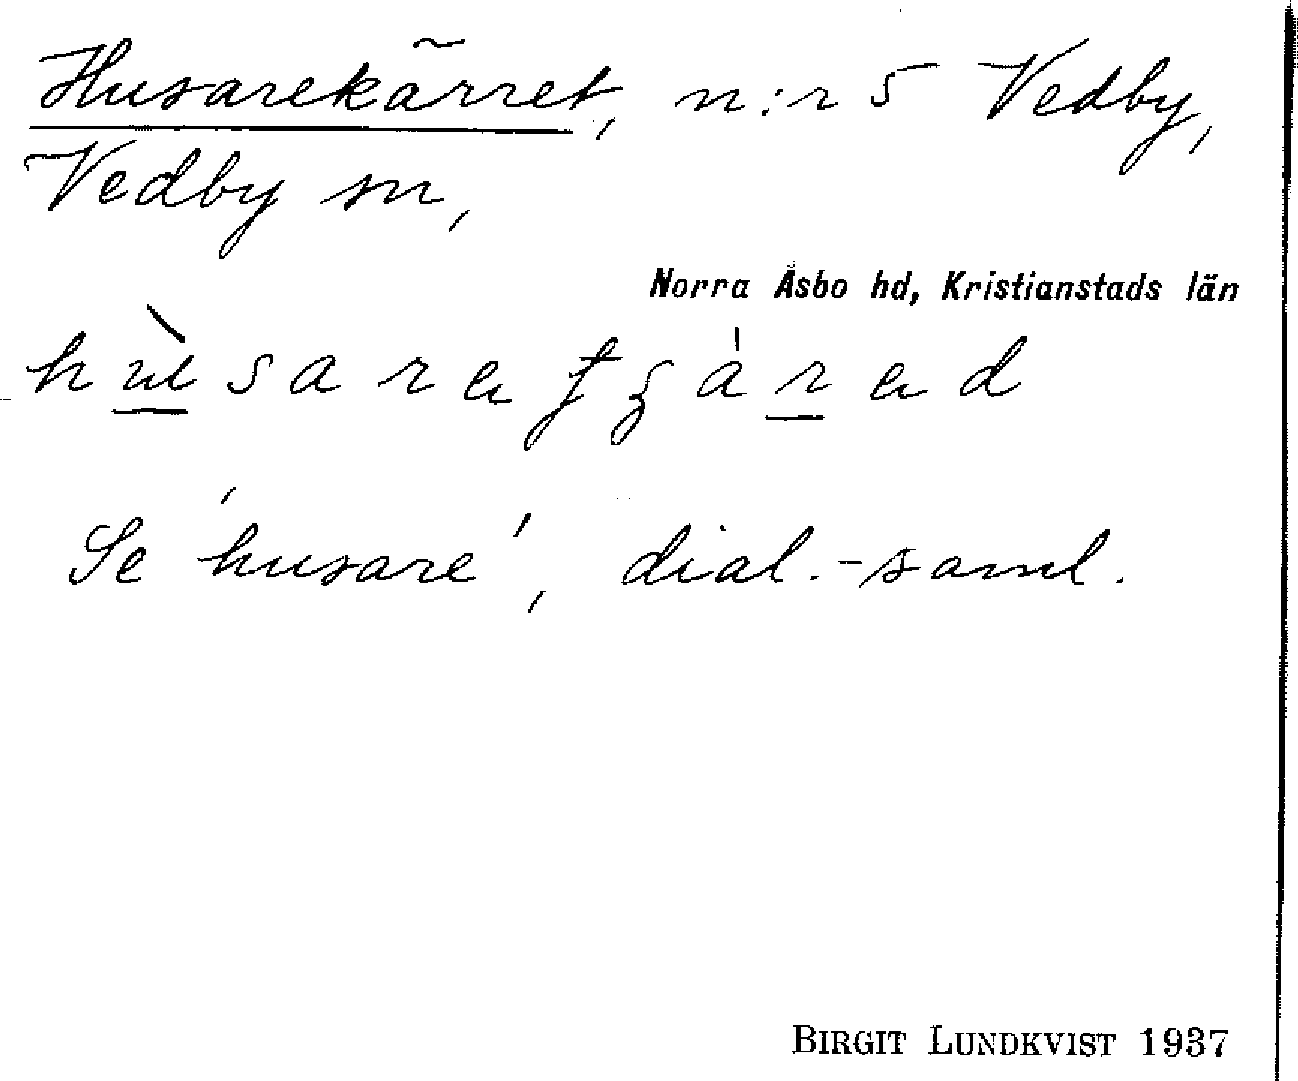 Husarekärret, n:r 5 Vedby,
Vedby sn,
Norra Åsbo hd, Kristianstads län
Se 'husare', dial.-saml.
BIRGIT LUNDKVIST 1937